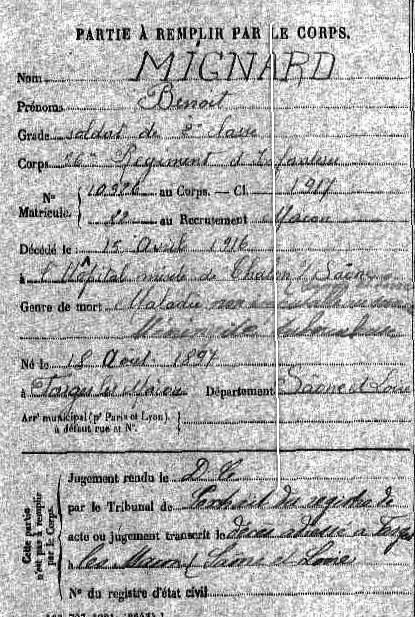 PARTIE À REMPLIR PAR LE CORPS.
Nom MIGNARD
Prénoms Benoit
Grade soldat de 2e classe
Corps 26me Régiment d'Infanterie
No Matricule. 10326 au Corps. — Cl. 1917
22 au Recrutement Macon
Décédé le 15 Avril 1916
à l'Hôpital mixte de Chalon s/ Saône
Genre de mort Maladie non
Méningite
Né le 18 Aout 1897
à les Macon Département Saône et Loire
Arrt municipal (pr Paris et Lyon),
à défaut rue et No.
Cette partie n'est pas à remplir par le Corps.
Jugement rendu le D. C.
par le Tribunal de des registres de
acte ou jugement transcrit le décès à
à les Macon (Saône et Loire
No du registre d'état civil